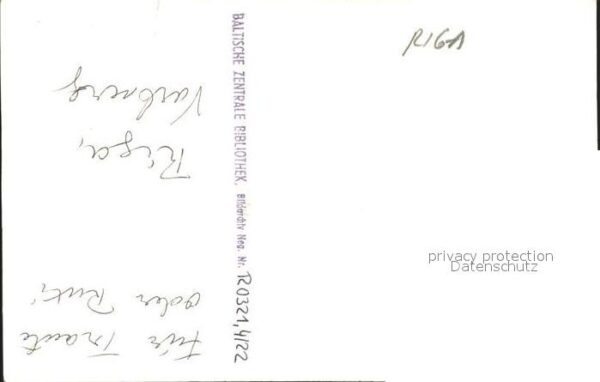 RIGA
BALTISCHE ZENTRALE BIBLIOTHEK. Bildarchiv Neg. Nr. R0321,4/22
privacy protection
Datenschutz
für Traute
oder Ruti
Riga,